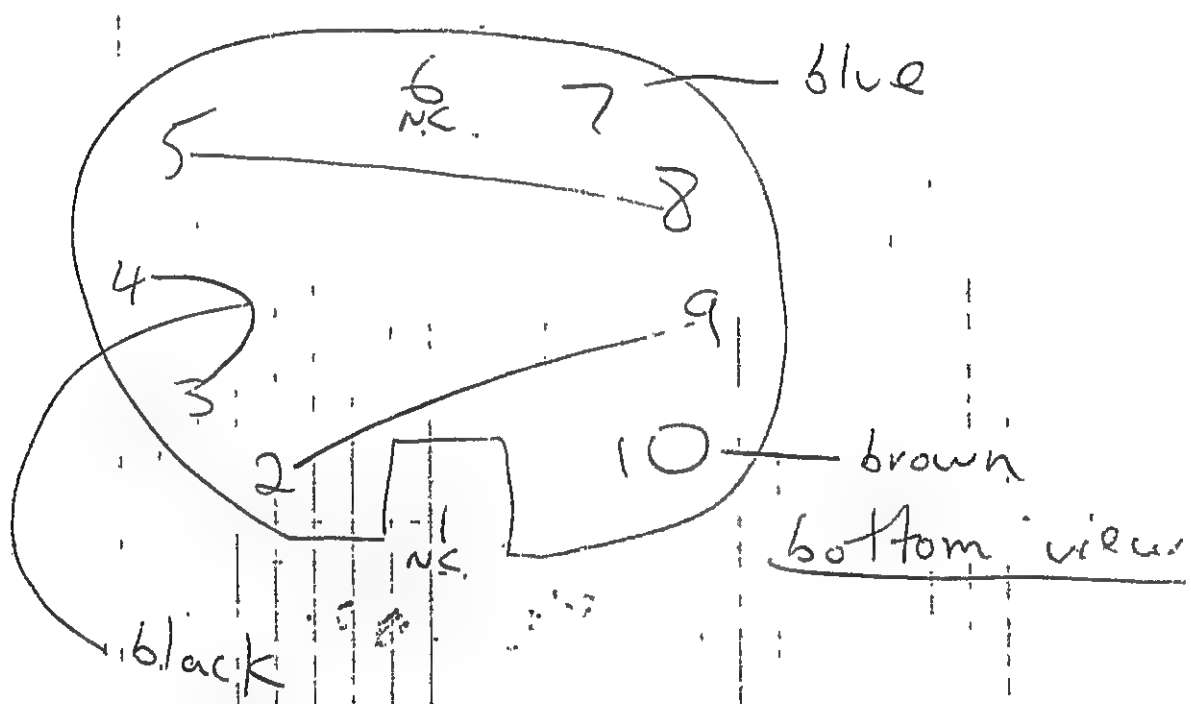 6 N.C.
7
blue
5
8
4
9
3
2
10
brown
1 N.C.
bottom view
black